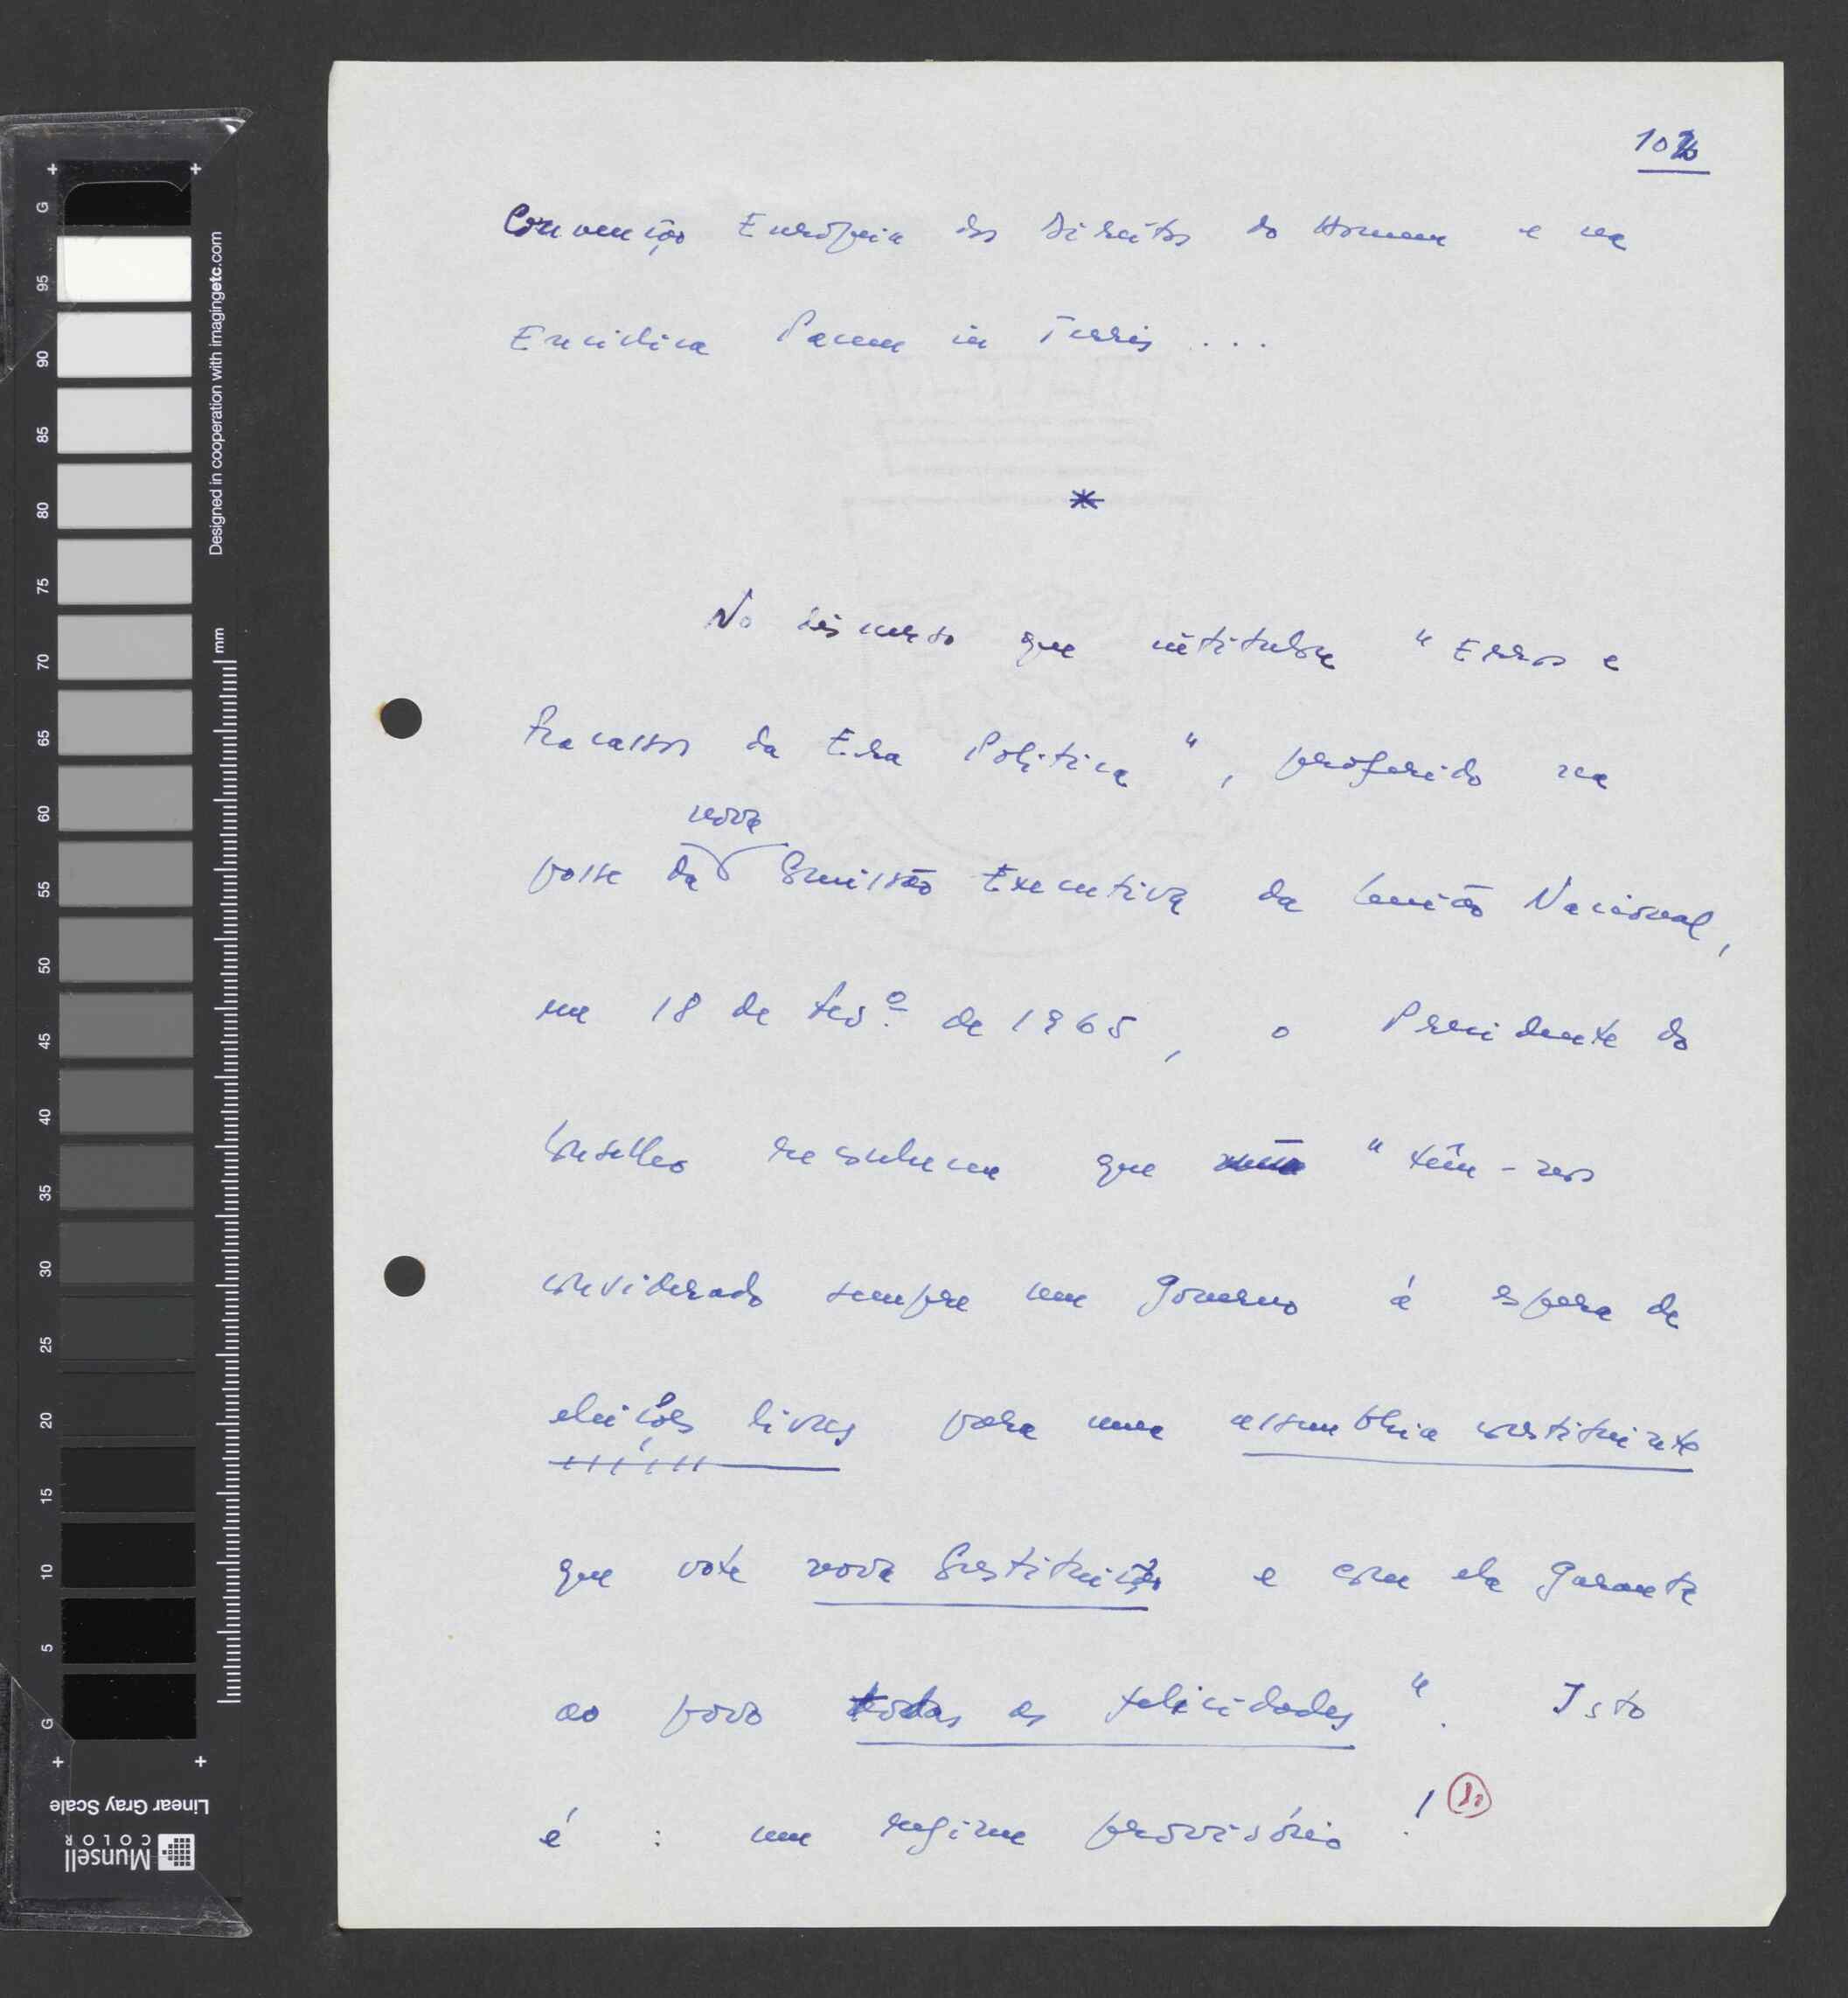 102
Convenção Européia dos Direitos do Homem e na
Encíclica Pacem in Terris ...
*
No discurso que intitulou "Erros e
fracassos da Era Política", proferido na
nova
posse da Comissão Executiva da União Nacional,
em 18 de fevº. de 1965, o Presidente do
Conselho reconheceu que "têm-nos
considerado sempre um Governo à espera de
eleições livres para uma assembleia constituinte
que vote nova Constituição e com ela garanta
ao povo todas as felicidades". Isto
é: um regime provisório!
Designed in cooperation with imagingetc.com
mm
G 95 90 85 80 75 70 65 60 55 50 45 40 35 30 25 20 15 10 5 G
Linear Gray Scale
Munsell
COLOR